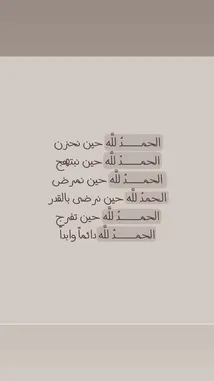 الحمــــدُ للَّه حين نحزن
الحمــــدُ للَّه حين نبتهج
الحمــــدُ للَّه حين نمرض
الحمدُ للَّه حين نرضى بالقدر
الحمــــدُ للَّه حين تفرج
الحمــــدُ للَّه دائماً وابداً